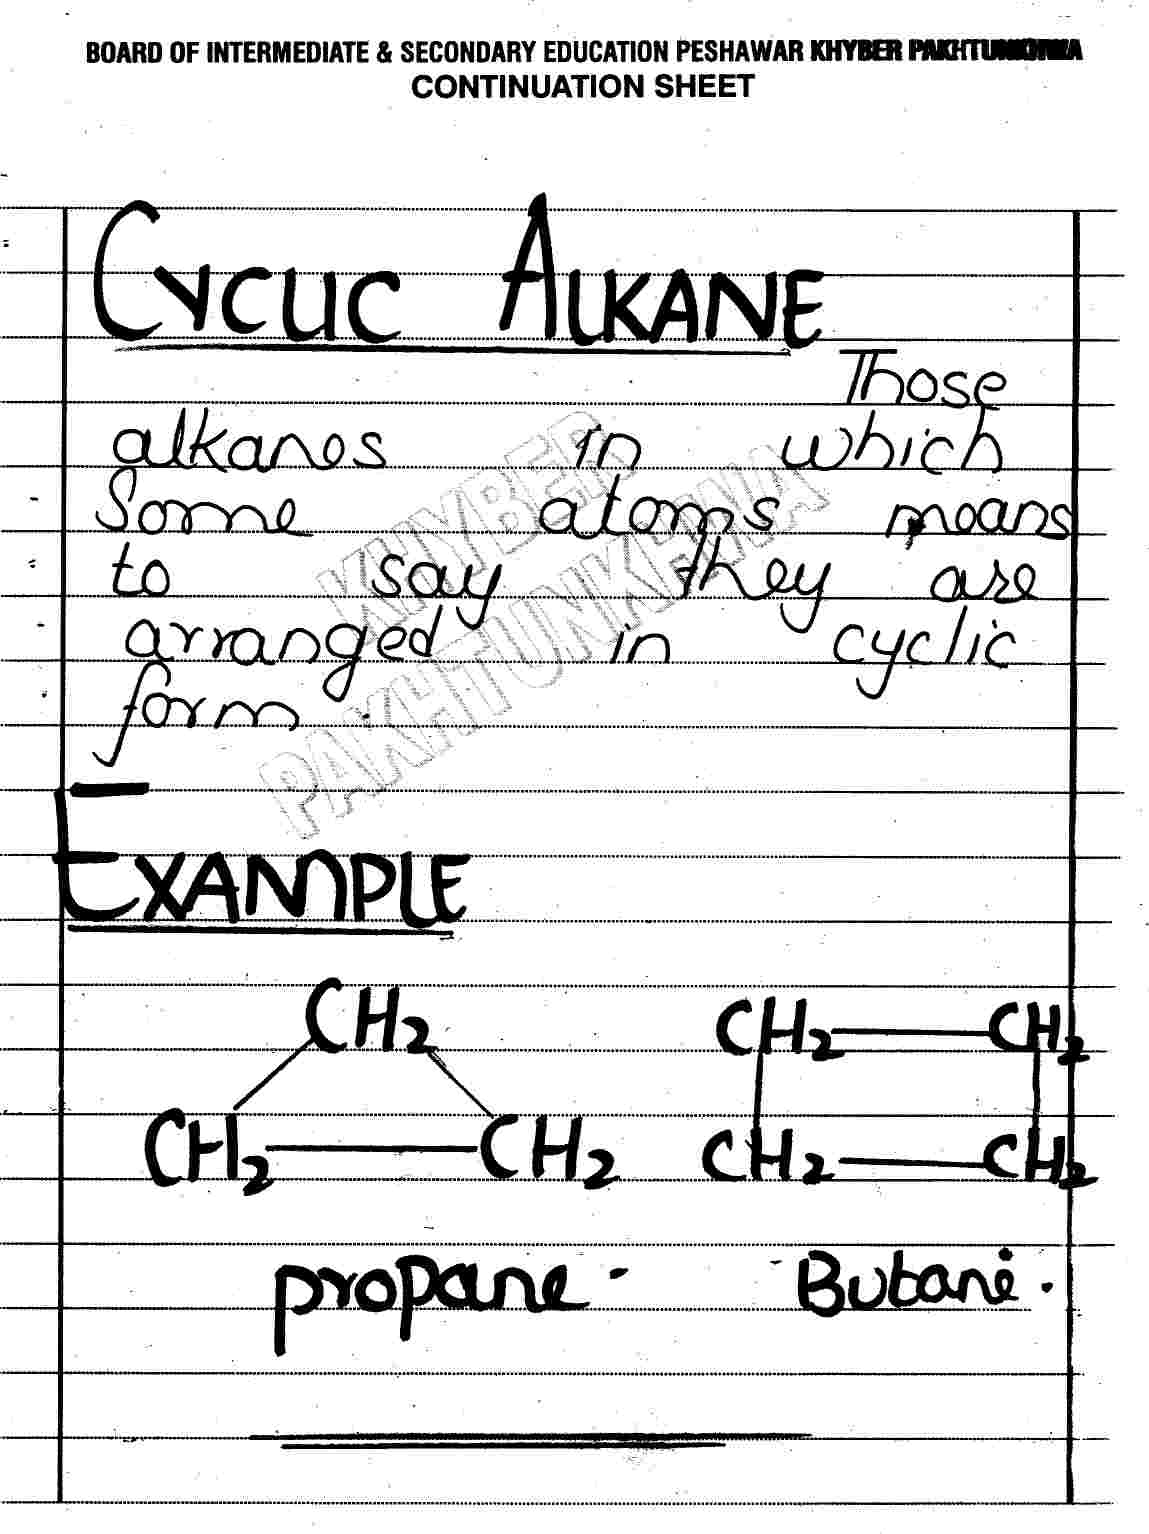 BOARD OF INTERMEDIATE & SECONDARY EDUCATION PESHAWAR KHYBER PAKHTUNKHWA
CONTINUATION SHEET
CYCLIC ALKANE
Those
alkanes in which
Some atoms means
to say they are
arranged in cyclic
form
KHYBER
PAKHTUNKHWA
EXAMPLE
CH2 CH2 CH2
CH2 CH2 CH2 CH2
propane. Butane.